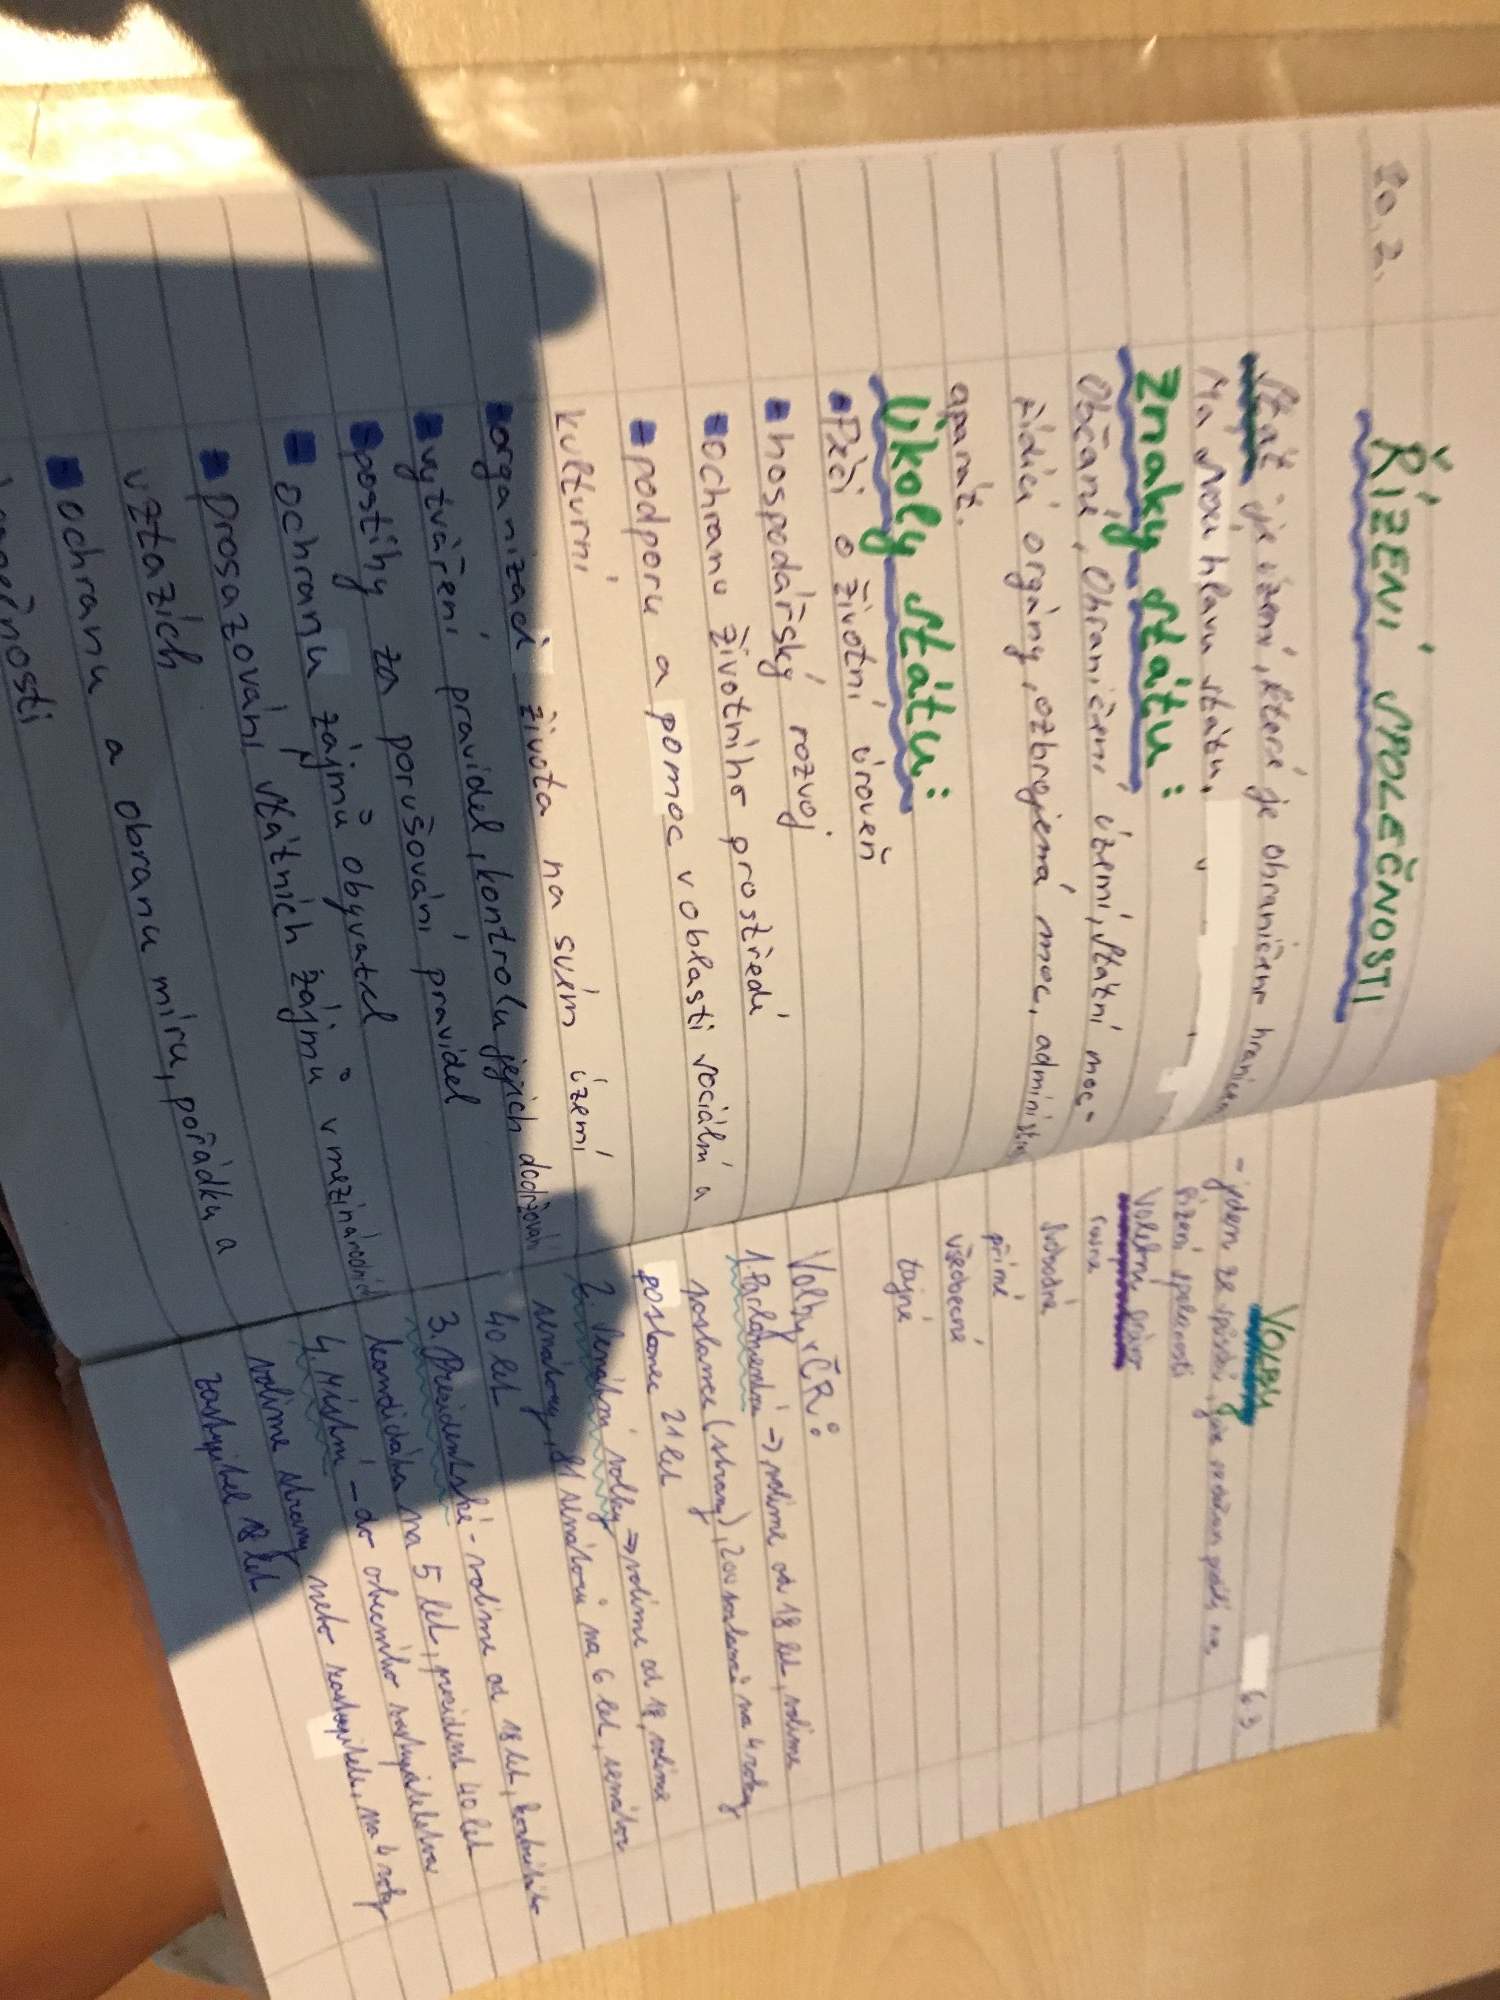 20.2.
ŘÍZENÍ SPOLEČNOSTI
Stát je území, které je ohraničeno hranicemi
Má svou hlavu státu.
Znaky státu:
Občané, Ohraničení území, Státní moc -
řídící orgány, ozbrojená moc,
aparát.
Úkoly státu:
- Péči o životní úroveň
- hospodářský rozvoj
- ochranu životního prostředí
- podporu a pomoc v oblasti sociální a
kulturní
- organizaci života na svém území
- vytváření pravidel, kontrolu jejich dodržování
- postihy za porušování pravidel
- ochranu zájmů obyvatel
- prosazování státních zájmů v mezinárodních
vztazích
- ochranu a obranu míru, pořádku a
VOLBY
6.3.
- jeden ze způsobů, jak občan
řízení společnosti
Volební právo
rovné
svobodné
přímé
všeobecné
tajné
Volby v ČR:
1. Parlamentní → volíme od 18 let, volíme
poslance (strany), 200 poslanců na 4 roky
poslanec 21 let
2. Senátní volby → volíme od 18, volíme
senátory, 81 senátorů na 6 let, senátor
40 let
3. Prezidentské - volíme od 18 let,
kandidáta na 5 let, prezident 40 let
4. Místní - do obecního zastupitelstva
volíme strany nebo zastupitele, na 4 roky
zastupitel 18 let